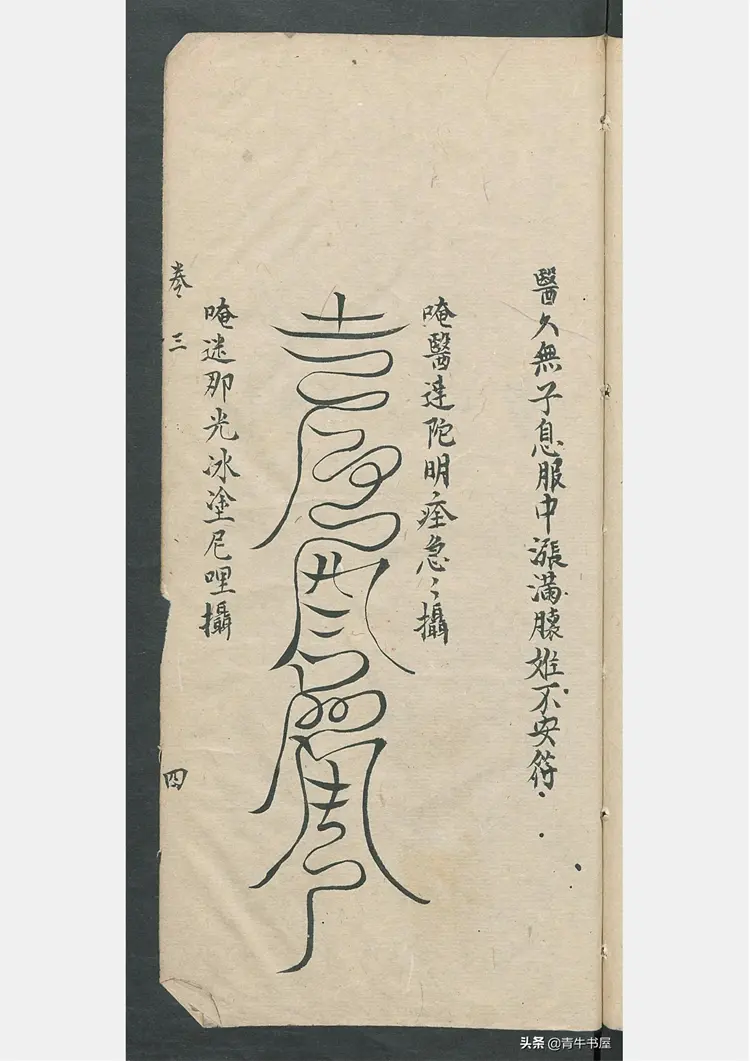 醫久無子息服中漲滿臊姙不安符
唵醫達陀明〻痊急〻攝
唵迷那光冰塗尼哩攝
卷三
四
头条 @青牛书屋